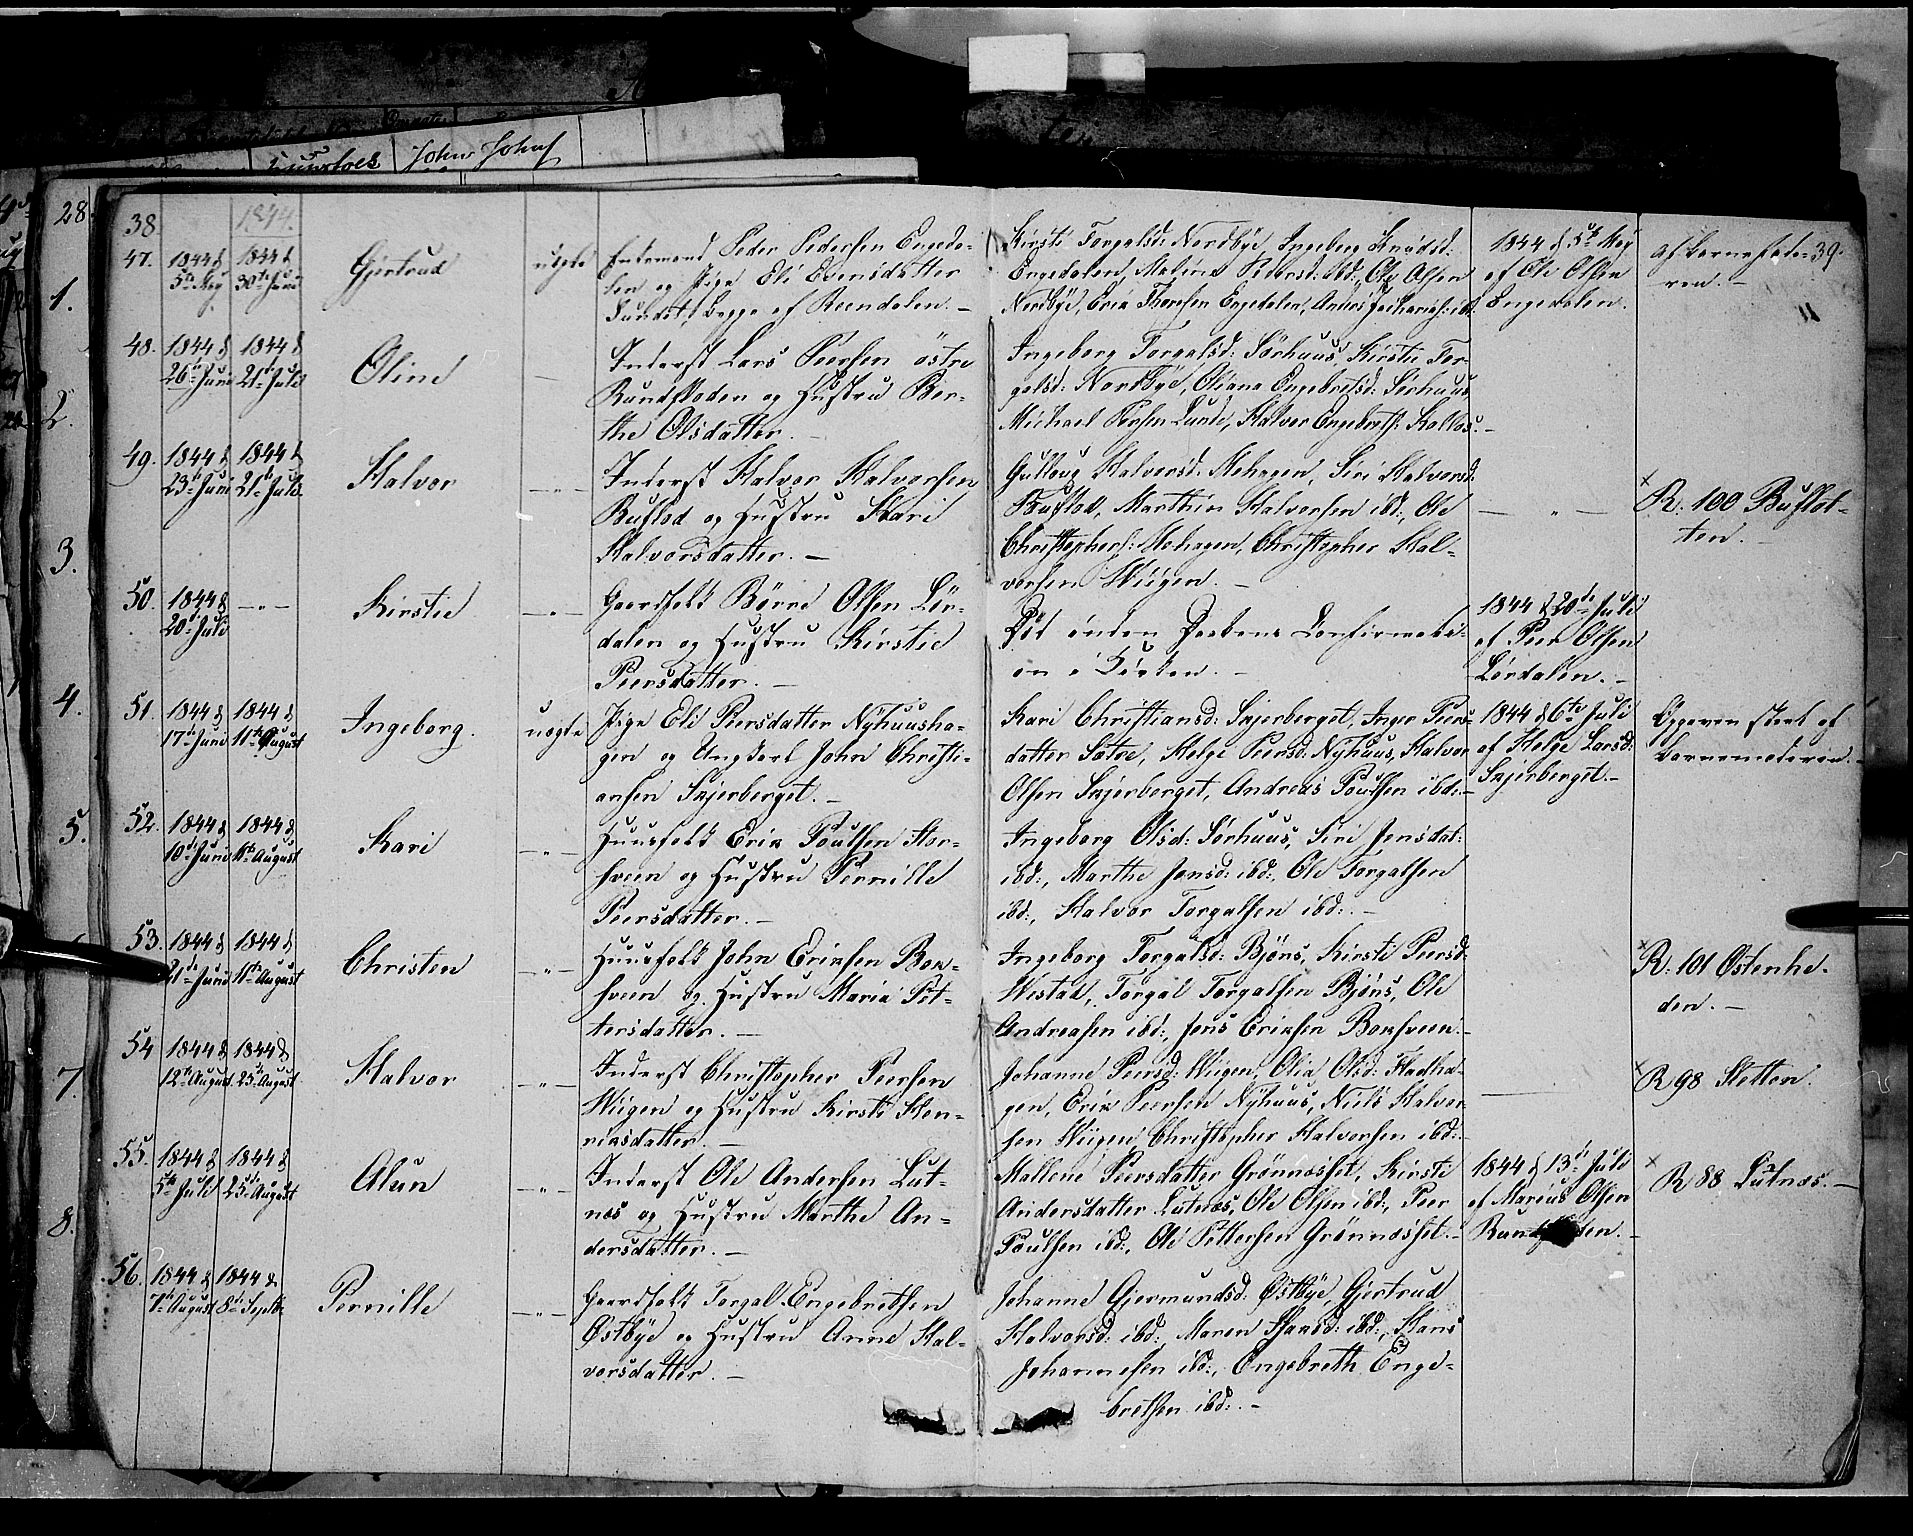 John Johns
28
38.
1844.
39.
47.
1844 d
5te May
1844 d
30te Juni
Gjertrud
uægte
Enkemand Peder Pedersen Engeda-
len og Pige Eli Evensdatter
Sundet, begge af Reendalen. -
Kirsti Torgalsd: Nordbye, Ingeborg Knudsd:
Engedalen, Malina Pedersd: ibd:, Ole Olsen
Nordbye, Erik Thoresen Engedalen, Anders Zachariass: ibd.
1844 d 5te May
af Ole Olsen
Engedalen.
af barnefade-
ren. -
1.
48.
1844 d
26te Juni
1844 d
21de Juli
Oline
Inderst Lars Peersen østre
Rundfloden og Hustru Ber-
the Olsdatter. -
Ingeborg Torgalsd: Sørhuus, Kirstie Tor-
galsd: Nordbye, Oliana Engebretsd: Sørhuus,
Michael Persen Lunde, Halvor Engebrets: Kolaas. -
2.
49.
1844 d
23de Juni
1844 d
21de Juli
Halvor
Inderst Halvor Halvorsen
Buflod og Hustru Kari
Halvorsdatter. -
Gullaug Halvorsd: Mohagen, Siri Halvorsd:
Buflod, Marthin Halvorsen ibd:, Ole
Christophers: Mohagen, Christopher Hal-
vorsen Wiigen. -
R. 100 Buflot-
ten.
3.
50.
1844 d
20de Juli
Kirstie
Gaardfolk Børre Olsen Lør-
dalen og Hustru Kirstie
Peersdatter. -
Død inden Daabens Confirmati-
on i Kirken. -
1844 d 20de Juli
af Peer Olsen
Lørdalen. -
4.
51.
1844 d
17de Juni
1844 d
11te August
Ingeborg.
uægte
Pige Eli Peersdatter Nyhuusha-
gen og Ungkarl John Christi-
ansen Skjerberget. -
Kari Christiansd: Skjerberget, Inger Peers-
datter Sætre, Helge Peersd: Nyhuus, Halvor
Olsen Skjerberget, Andreas Poulsen ibd:-
1844 d 6te Juli
af Helge Larsd:
Skjerberget. -
Opgaven skeet af
Barnemoderen. -
5.
52.
1844 d
10de Juni
1844 d
11te August
Kari
Huusfolk Erik Poulsen Stor-
hveen og Hustru Pernille
Peersdatter. -
Ingeborg Olsd: Sørhuus, Siri Jensdat:
ibd:, Marthe Jensd: ibd:, Ole Torgalsen
ibd:, Halvor Torgalsen ibd:. -
53.
1844 d
21de Juni
1844 d
11te August
Christen
Huusfolk John Eriksen Bak-
hveen og Hustru Maria Pet-
tersdatter. -
Ingeborg Torgalsd: Bjøns, Kirsti Peersd:
Westad, Torgal Torgalsen Bjøns, Ole
Andreasen ibd:, Jens Eriksen Bakhveen. -
R. 101 Østenhe-
den. -
54
1844 d
12te August
1844 d
25de August
Halvor
Inderst Christopher Peersen
Wiigen og Hustru Kirsti Hen-
riksdatter. -
Johanne Peersd: Wiigen, Olia Olsd: Stadha-
gen, Erik Peersen Nyhuus, Niels Halvor-
sen Wiigen, Christopher Halvorsen ibd:-
R 98 Sletten.
7.
55.
1844 d
5te Juli
1844 d
25de August
Alun
Inderst Ole Andersen Lut-
næs og Hustru Marthe An-
dersdatter. -
Mallene Peersdatter Grønnæsset, Kirsti
Andersdatter Lutnæs, Ole Olsen ibd:, Peer
Poulsen ibd:, Ole Pettersen Grønnæsset. -
1844 d 13de Juli
af Marius Olsen
R 88 Lutnæs. -
8.
56.
1844 d
7de August
1844 d
8de Septb:
Pernille
Gaardfolk Torgal Engebrethsen
Østbye og Hustru Anne Hal-
vorsdatter. -
Johanne Gjermundsd: Østbye, Gjertrud
Halvorsd: ibd:, Maren Hansd: ibd:, Hans
Johannesen ibd:, Engebreth Enge-
brethsen ibd:. -